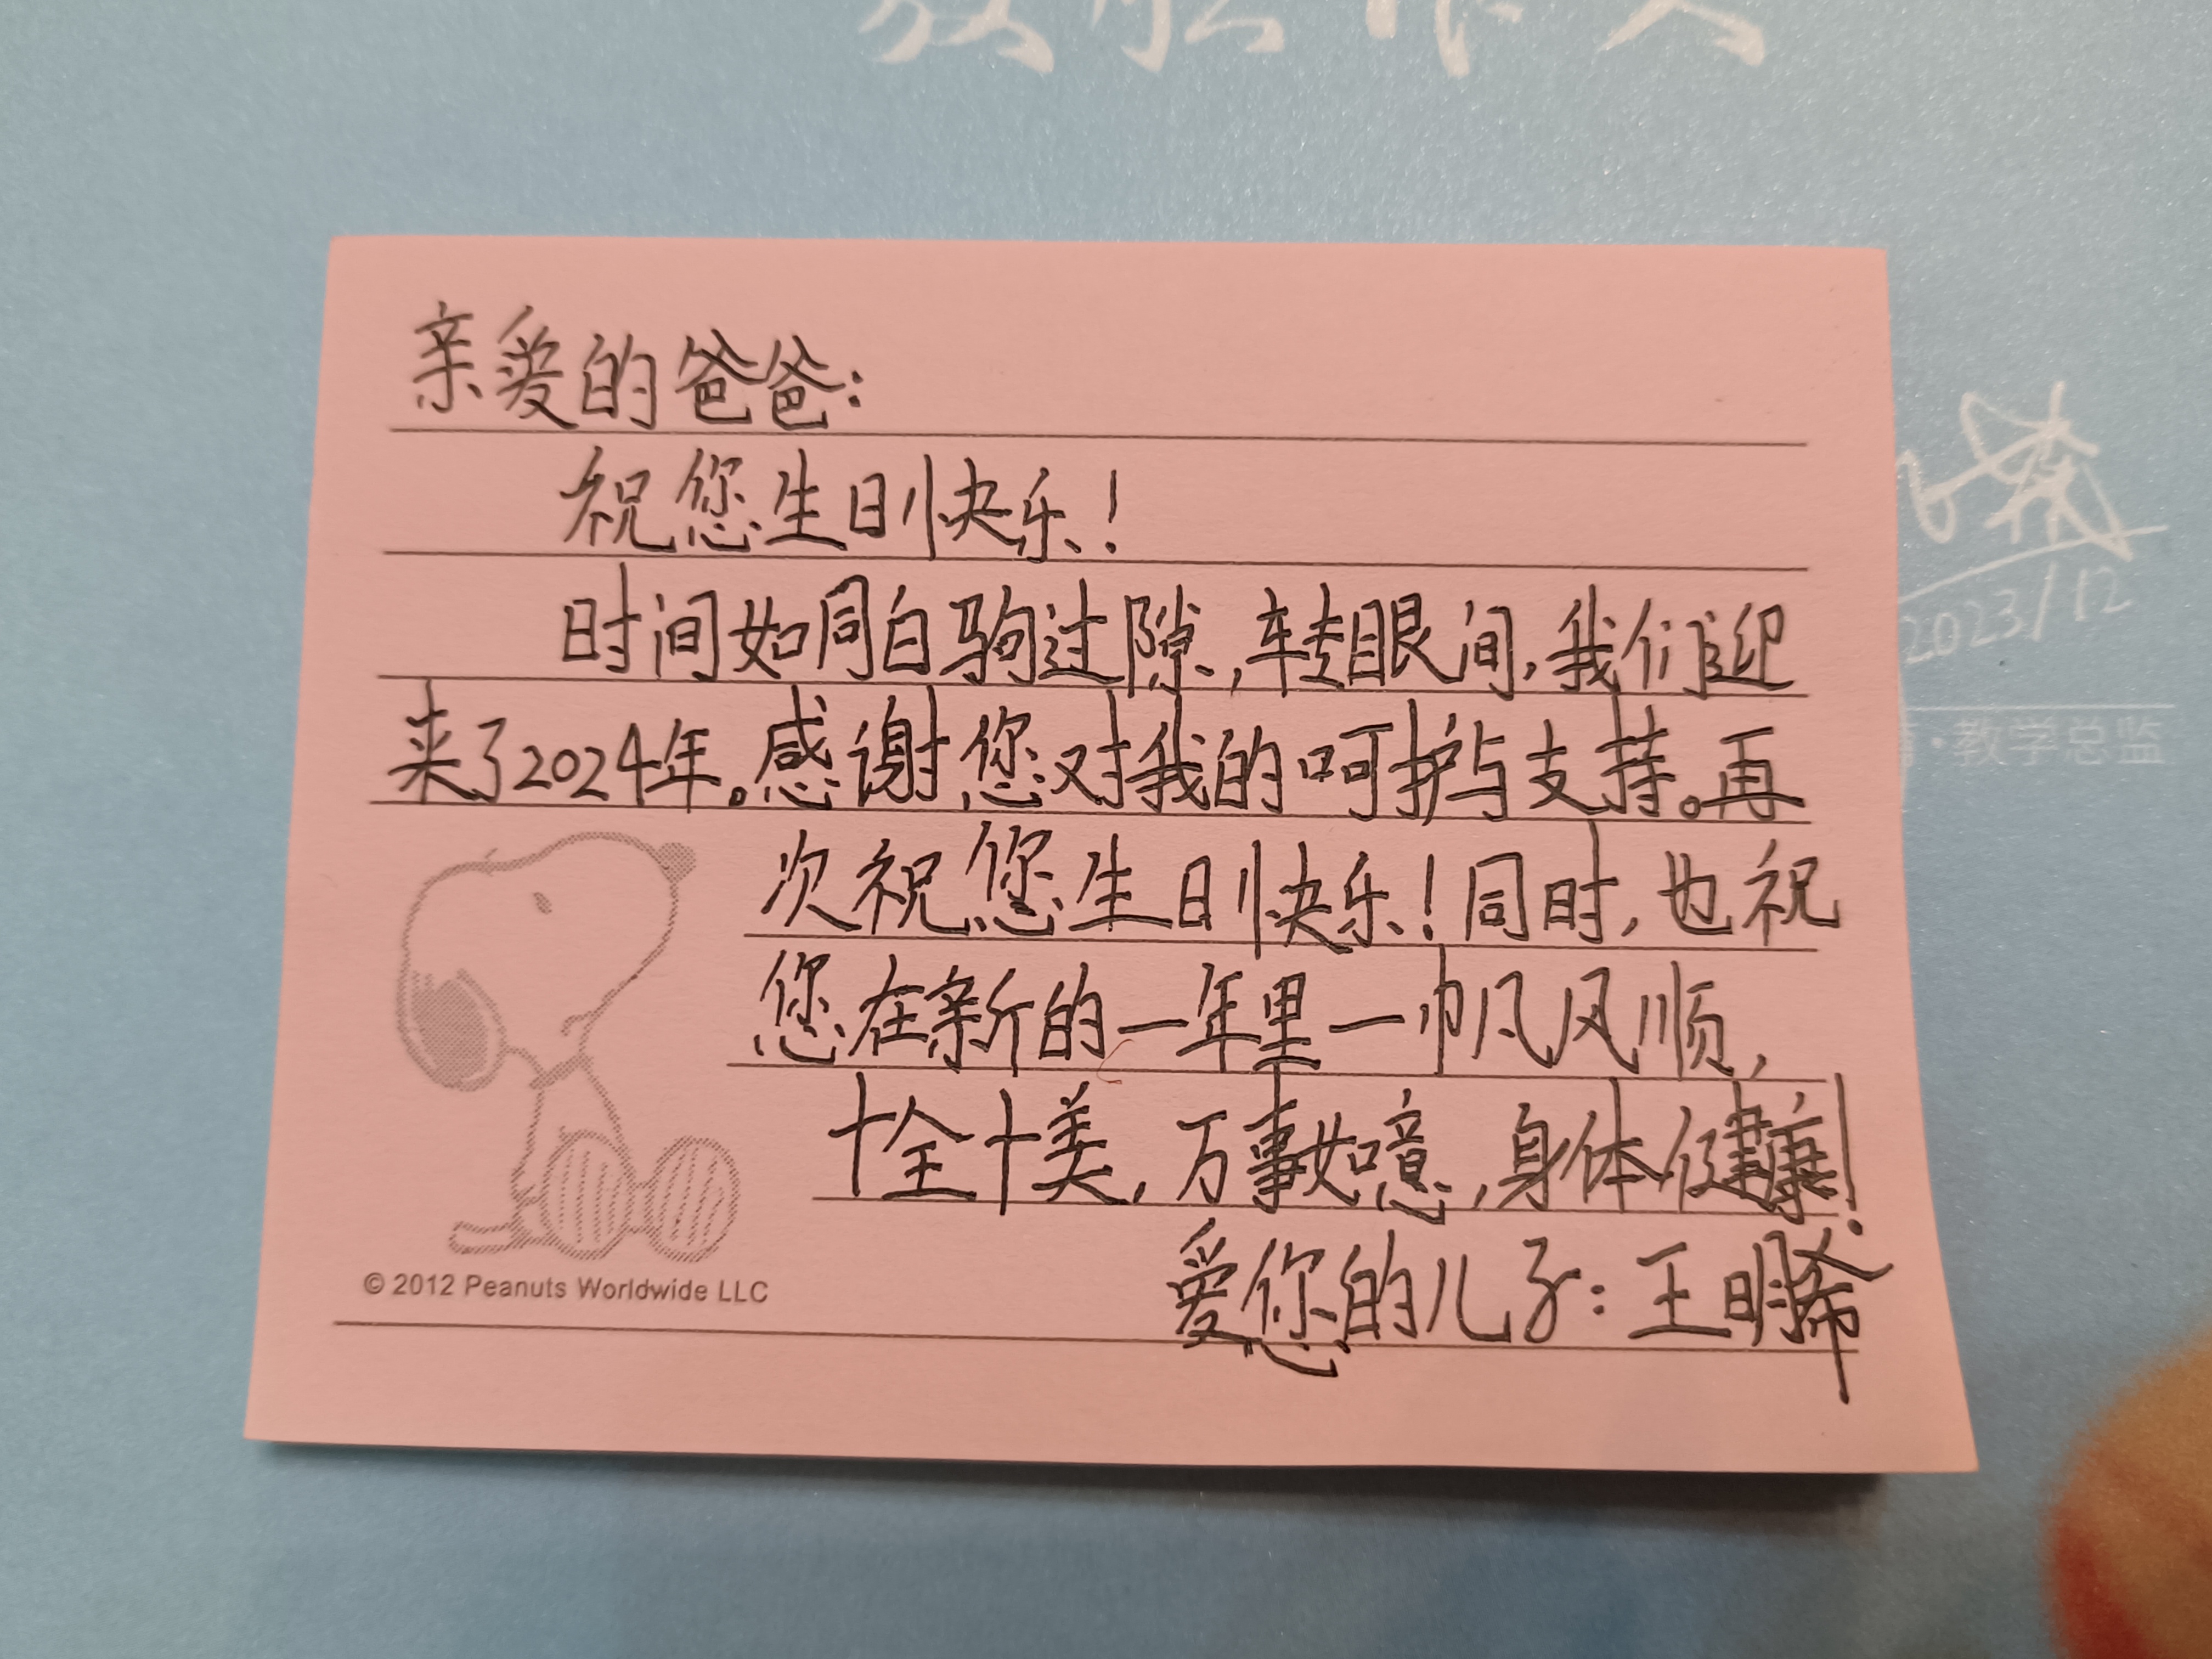 亲爱的爸爸:
祝您生日快乐!
时间如同白驹过隙,转眼间,我们迎
来了2024年。感谢您对我的呵护与支持。再
次祝您生日快乐!同时,也祝
您在新的一年里一帆风顺,
十全十美,万事如意,身体健康!
爱您的儿子:王明希
© 2012 Peanuts Worldwide LLC
2023/12
·教学总监